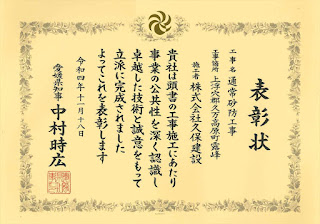 表彰状
工事名 通常砂防工事
工事場所 上浮穴郡久万高原町露峰
施工者 株式会社久保建設
貴社は頭書の工事施工にあたり
事業の公共性を深く認識し
卓越した技術と誠意をもって
立派に完成されました
よってこれを表彰します
令和四年十一月十八日
愛媛県知事 中村時広